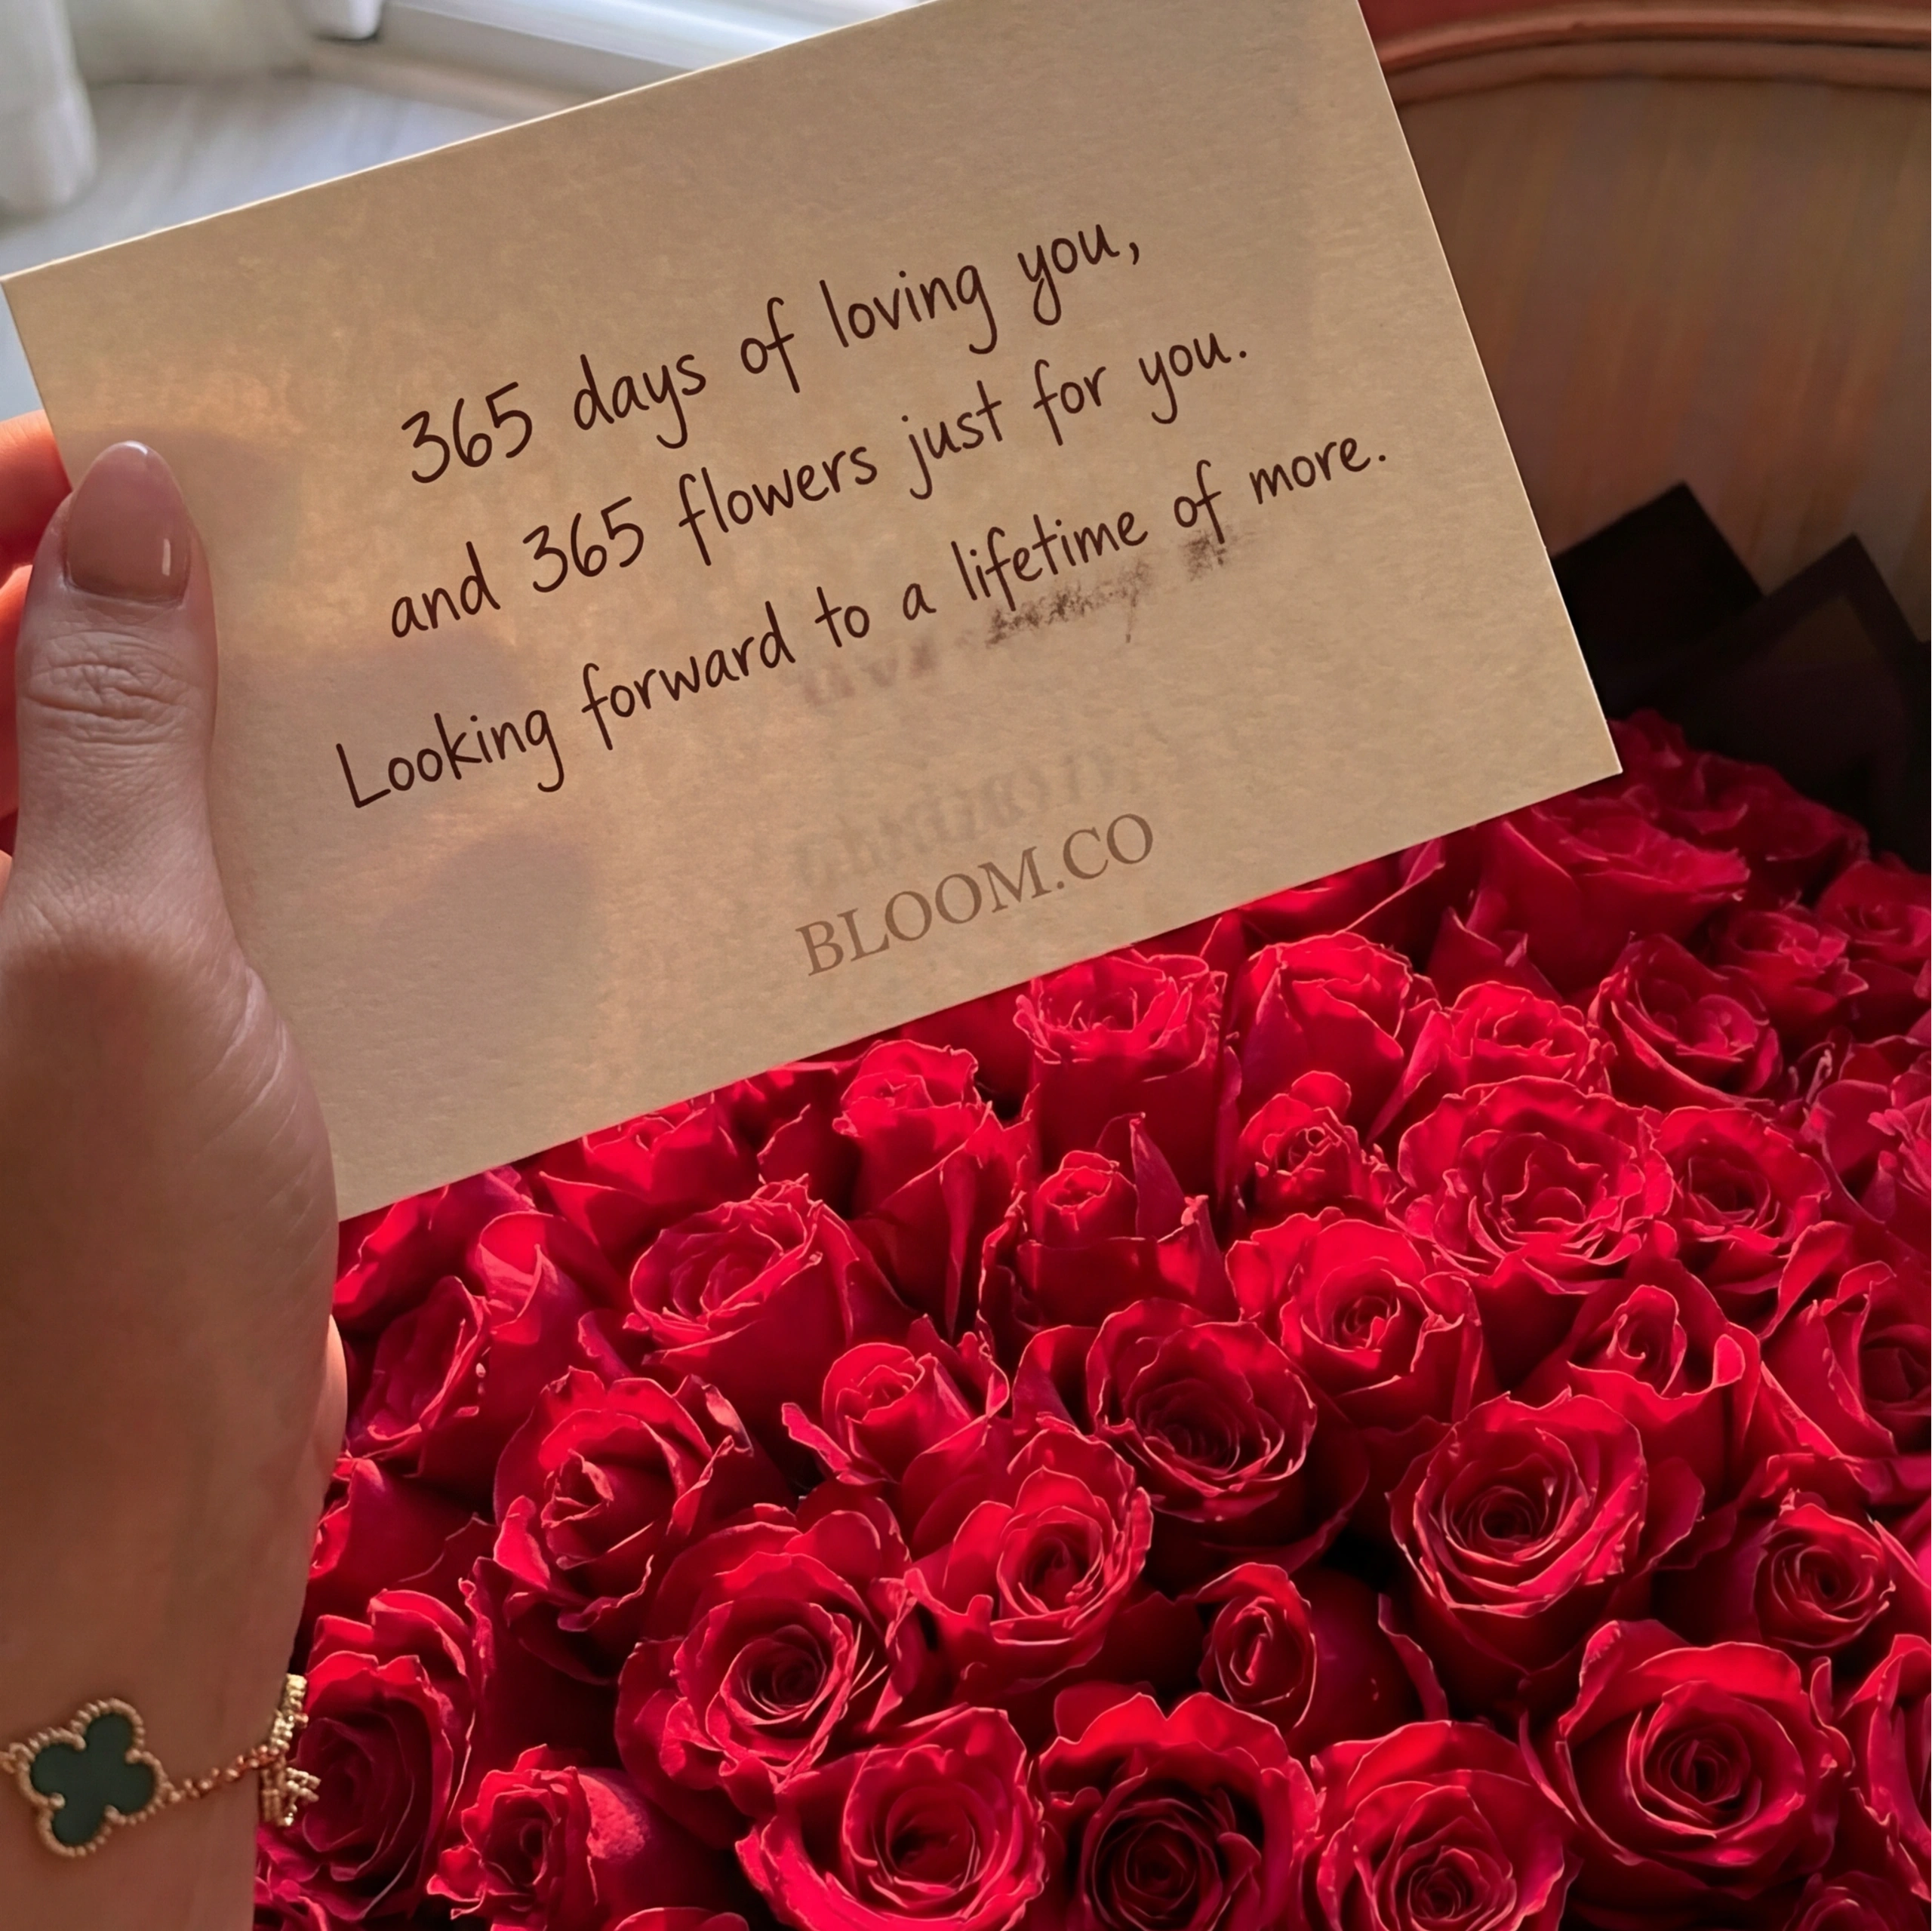 365 days of loving you,
and 365 flowers just for you.
Looking forward to a lifetime of more.
BLOOM.CO